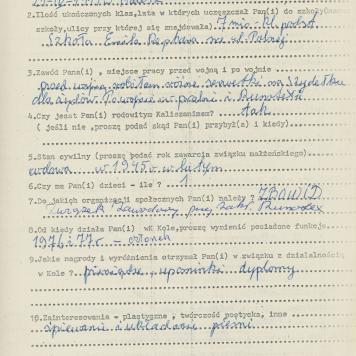 2.Ilość ukończonych klas,lata w których uczęszczał Pan(i) do szkoły
szkoły,ulicy przy której się znajdowała). 7 mio. kl. podst.
Szkoła. na ul.
3.Zawód Pana(i) , miejsce pracy przed wojną i po wojnie
przed wojną robiłam różne serwetki na szydełku
dla żydów. Po wojnie w pralni i Runotexu
4.Czy jest Pan(i) rodowitym Kaliszaninem? tak
( jeśli nie ,proszę podać skąd Pan(i) przybył(a) i kiedy)
5.Stan cywilny (proszę podać rok zawarcia związku małżeńskiego)
wdowa w 1945 r w lutym
6.Czy ma Pan(i) dzieci - ile ? 1
7.Do jakich organizacji społecznych Pan(i) należy ? ZBOWID
Związek Zawodowy przy zakł. Runotex
8.Od kiedy działa Pan(i) wK Kole,proszę wymienić posiadane funkcje
1976 i 77 r. - członek
9.Jakie nagrody i wyróżnienia otrzymał Pan(i) w związku z działalnością
w Kole ? pieniądze, upominki dyplomy
10.Zainteresowania - plastyczne , twórczość poetycka, inne
śpiewanie i układanie pieśni